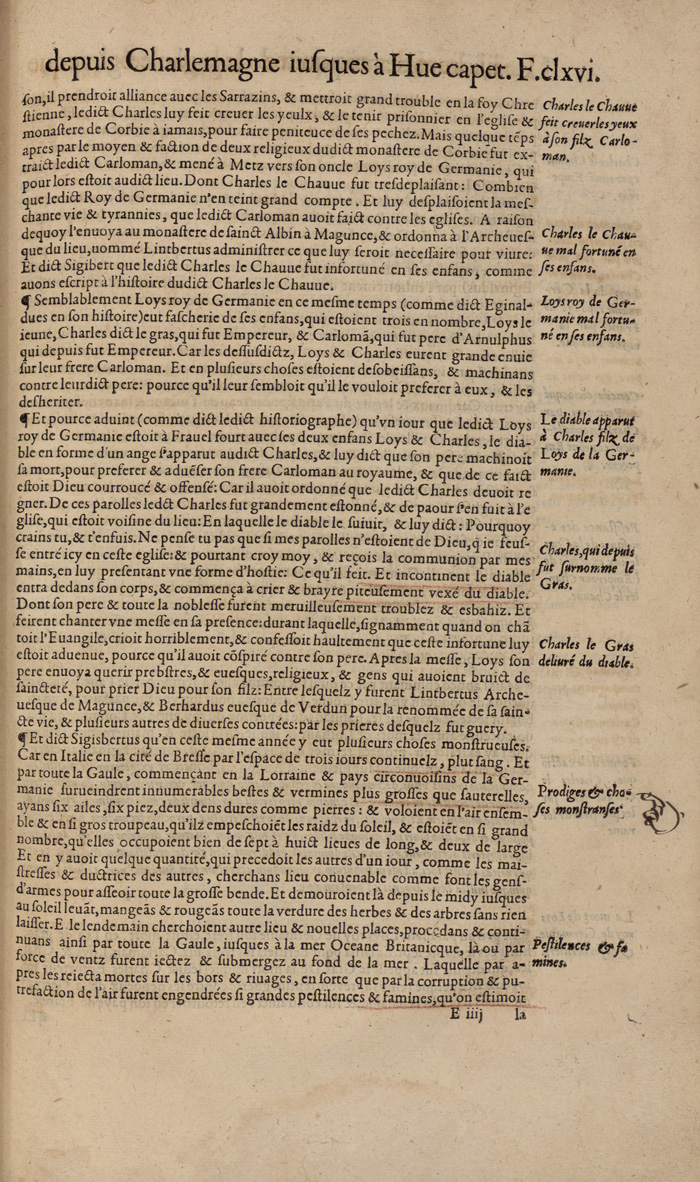 depuis Charlemagne iuſques à Hue capet. F.clxvi.
ſon, il prendroit alliance auec les Sarrazins, & mettroit grand trouble en la foy Chre
ſtienne, ledict Charles luy feit creuer les yeulx, & le tenir priſonnier en l'egliſe &
monaſtere de Corbie à iamais, pour faire peniteuce de ſes pechez. Mais quelque tẽps
apres par le moyen & faction de deux religieux dudict monaſtere de Corbie fut ex-
traict ledict Carloman, & mené à Metz vers ſon oncle Loys roy de Germanie, qui
pour lors eſtoit audict lieu. Dont Charles le Chauue fut treſdeplaiſant: Combien
que ledict Roy de Germanie n'en teint grand compte. Et luy deſplaiſoient la meſ-
chante vie & tyrannies, que ledict Carloman auoit faict contre les egliſes. A raiſon
dequoy l'enuoya au monaſtere de ſainct Albin à Magunce, & ordonna à l'Archeueſ-
que du lieu, nommé Lintbertus adminiſtrer ce que luy ſeroit neceſſaire pour viure:
Et dict Sigibert que ledict Charles le Chauue fut infortuné en ſes enfans, comme
auons eſcript à l'hiſtoire dudict Charles le Chauue.
¶ Semblablement Loys roy de Germanie en ce meſme temps (comme dict Eginal-
dues en ſon hiſtoire) eut faſcherie de ſes enfans, qui eſtoient trois en nombre, Loys le
ieune, Charles dict le gras, qui fut Empereur, & Carlomã, qui fut pere d'Arnulphus
qui depuis fut Empereur. Car les deſſuſdictz, Loys & Charles eurent grande enuie
ſur leur frere Carloman. Et en pluſieurs choſes eſtoient deſobeiſſans, & machinans
contre leurdict pere: pource qu'il leur ſembloit qu'il le vouloit preferer à eux, & les
deſheriter.
¶ Et pource aduint (comme dict ledict hiſtoriographe) qu'vn iour que ledict Loys
roy de Germanie eſtoit à Frauel fourt auec ſes deux enfans Loys & Charles, le dia-
ble en forme d'un ange ſ'apparut audict Charles, & luy dict que ſon pere machinoit
ſa mort, pour preferer & aduẽſer ſon frere Carloman au royaume, & que de ce faict
eſtoit Dieu courroucé & offenſé: Car il auoit ordonné que ledict Charles deuoit re
gner. De ces parolles ledict Charles fut grandement eſtonné, & de paour ſ'en fuit à l'e
gliſe, qui eſtoit voiſine du lieu: En laquelle le diable le ſuiuit, & luy dict: Pourquoy
crains tu, & t'enfuis. Ne penſe tu pas que ſi mes parolles n'eſtoient de Dieu, q ie feuſ-
ſe entré icy en ceſte egliſe: & pourtant croy moy, & reçois la communion par mes
mains, en luy preſentant vne forme d'hoſtie: Ce qu'il feit. Et incontinent le diable
entra dedans ſon corps, & commença à crier & brayre piteuſement vexé du diable.
Dont ſon pere & toute la nobleſſe furent merueilleuſement troublez & esbahiz. Et
feirent chanter vne meſſe en ſa preſence: durant laquelle, ſignamment quand on chã
toit l'Euangile, crioit horriblement, & confeſſoit haultement que ceſte infortune luy
eſtoit aduenue, pource qu'il auoit cõſpiré contre ſon pere. Apres la meſſe, Loys ſon
pere enuoya querir prebſtres, & eueſques, religieux, & gens qui auoient bruict de
ſaincteté, pour prier Dieu pour ſon filz: Entre leſquelz y furent Lintbertus Arche-
ueſque de Magunce, & Berhardus eueſque de Verdun pour la renommée de ſa ſain-
cte vie, & pluſieurs autres de diuerſes contrées: par les prieres deſquelz fut guery.
¶ Et dict Sigisbertus qu'en ceſte meſme année y eut pluſieurs choſes monſtrueuſes.
Car en Italie en la cité de Breſſe par l'eſpace de trois iours continuelz, plut ſang. Et
par toute la Gaule, commençant en la Lorraine & pays circonuoiſins de la Ger-
manie ſurueindrent innumerables beſtes & vermines plus groſſes que ſauterelles,
ayans ſix ailes, ſix piez, deux dens dures comme pierres: & voloient en l'air enſem-
ble & en ſi gros troupeau, qu'ilz empeſchoiẽt les raidz du ſoleil, & eſtoiẽt en ſi grand
nombre, qu'elles occupoient bien de ſept à huict lieues de long, & deux de large
Et en y auoit quelque quantité, qui precedoit les autres d'un iour, comme les mai-
ſtreſſes & ductrices des autres, cherchans lieu conuenable comme font les genſ-
d'armes pour aſſeoir toute la groſſe bende. Et demouroient là depuis le midy iuſques
au ſoleil leuãt, mangeãs & rougeãs toute la verdure des herbes & des arbres sans rien
laiſſer. E le lendemain cherchoient autre lieu & nouelles places, procedans & conti-
nuans ainſi par toute la Gaule, iuſques à la mer Oceane Britanicque, là ou par
force de ventz furent iectez & ſubmergez au fond de la mer. Laquelle par a-
pres les reiecta mortes ſur les bors & riuages, en ſorte que par la corruption & pu-
trefaction de l'air furent engendrées ſi grandes peſtilences & famines, qu'on eſtimoit
E iiij la
Charles le Chauue
feit creuer les yeux
à ſon filz Carlo-
man.
Charles le Chau-
ue mal fortuné en
ſes enfans.
Loys roy de Ger-
manie mal fortu-
né en ſes enfans.
Le diable apparut
à Charles filz de
Loys de la Ger-
manie.
Charles, qui depuis
fut ſurnomme le
Gras.
Charles le Gras
deliuré du diable.
Prodiges & cho-
ſes monſtranſes.
Peſtilences & fa
mines.